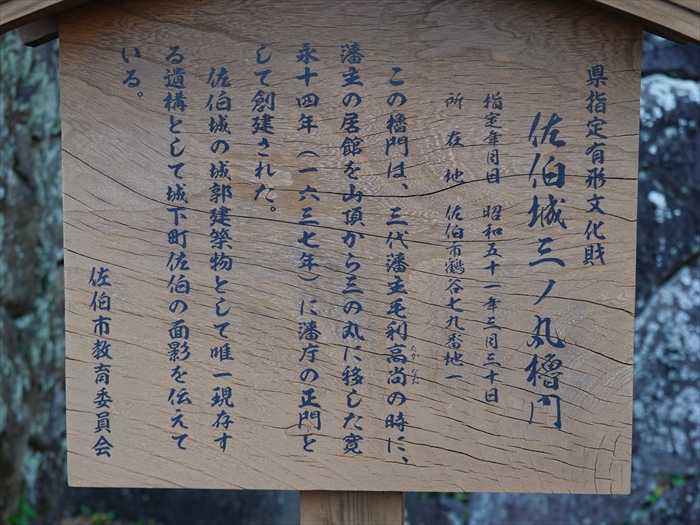 県指定有形文化財
佐伯城三ノ丸櫓門
指定年月日 昭和五十一年三月三十日
所在地 佐伯市鶴谷七九番地一
この櫓門は、三代藩主毛利高尚の時に、
たかなお
藩主の居館を山頂から三の丸に移した寛
永十四年(一六三七年)に藩庁の正門と
して創建された。
佐伯城の城郭建築物として唯一現存す
る遺構として城下町佐伯の面影を伝えて
いる。
佐伯市教育委員会